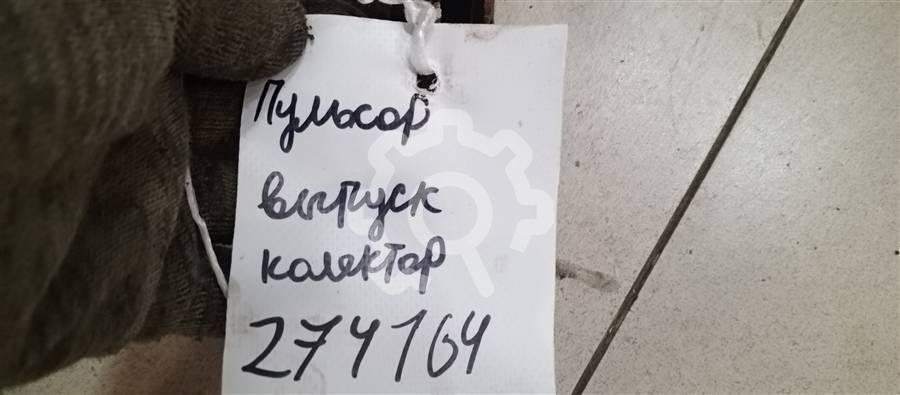 Пульсар
выпуск
колектор
274164